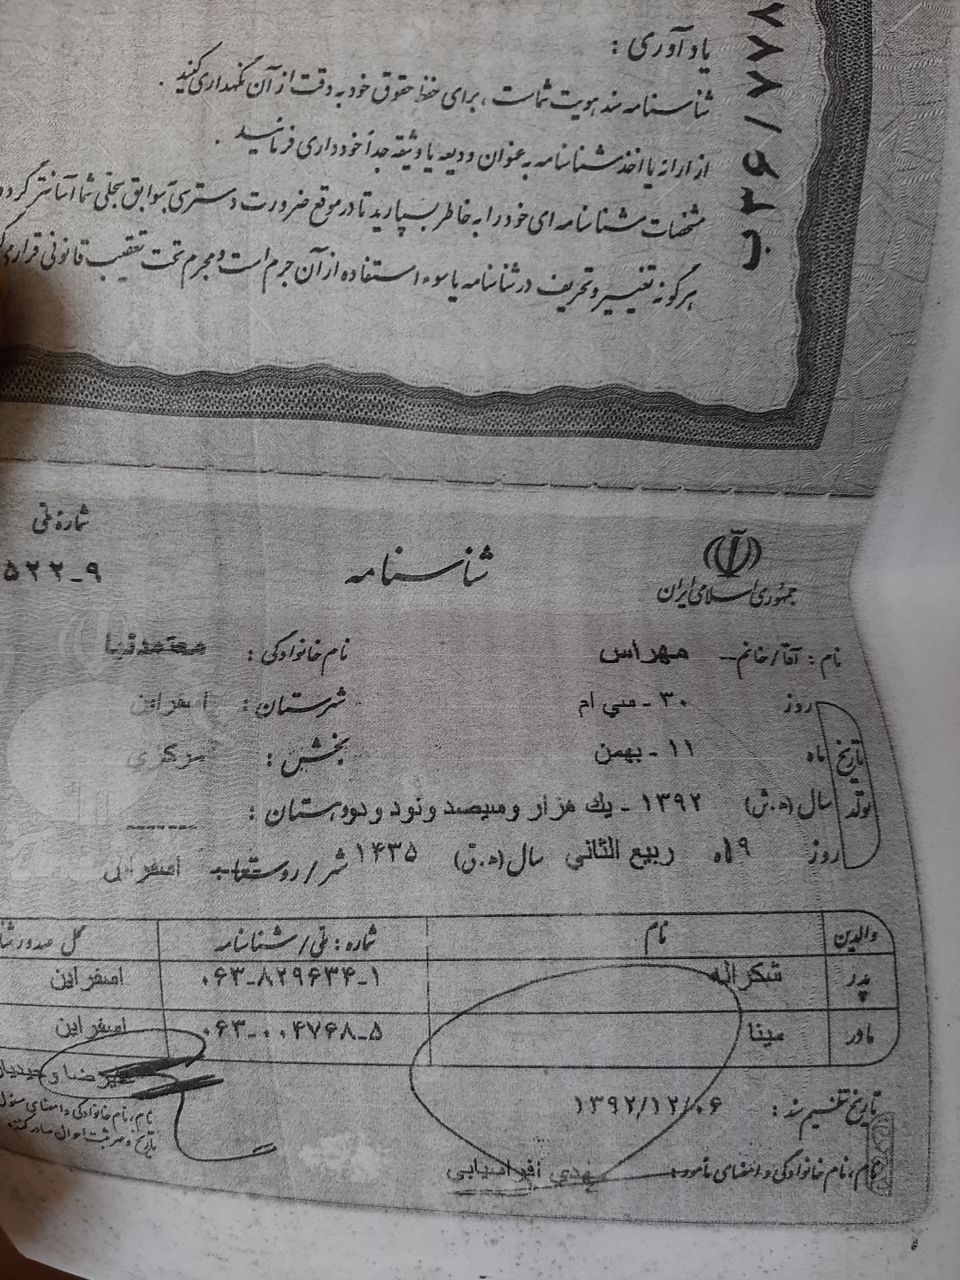 یادآوری :
شناسنامه سند هویت شماست ، برای حفظ حقوق خود به دقت از آن نگهداری کنید .
از ارائه یا اخذ شناسنامه به عنوان ودیعه یا وثیقه جداً خودداری فرمائید .
مشخصات شناسنامه ای خود را به خاطر بسپارید تا در موقع ضرورت دسترسی بسوابق سجلی شما آسانتر گردد
هرگونه تغییر و تحریف در شناسنامه یا سوء استفاده از آن جرم است و مجرم تحت تعقیب قانونی قرار
ب۳۶/۷۷۸
جمهوری اسلامی ایران
شناسنامه
شمارهٔ ملی
۵۲۲-۹
نام : آقا/خانم مهراس نام خانوادگی : معتمدنیا
تاریخ تولد
روز ۳۰ - سی ام شهرستان : اسفراین
ماه ۱۱ - بهمن بخش : مرکزی
سال (ه.ش) ۱۳۹۲ - یك هزار و سیصد و نود و دو دهستان : ------
روز ۱۹ ماه ربیع الثانی سال (ه.ق) ۱۴۳۵ شهر/روستا اسفراین
والدین نام شماره : ملی/شناسنامه محل صدور
پدر شکراله ۰۶۳-۸۲۹۶۳۴-۱ اسفراین
مادر مینا ۰۶۳-۰۰۴۷۶۸-۵ اسفراین
تاریخ تنظیم سند : ۱۳۹۲/۱۲/۰۶
نام ، نام خانوادگی و امضای مأمور : مهدی افراسیابی
علیرضا وحیدیان
نام ، نام خانوادگی و امضای مسئول